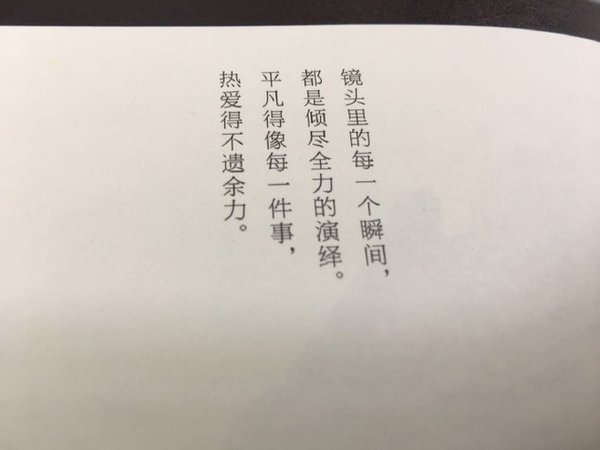 镜头里的每一个瞬间，
都是倾尽全力的演绎。
平凡得像每一件事，
热爱得不遗余力。